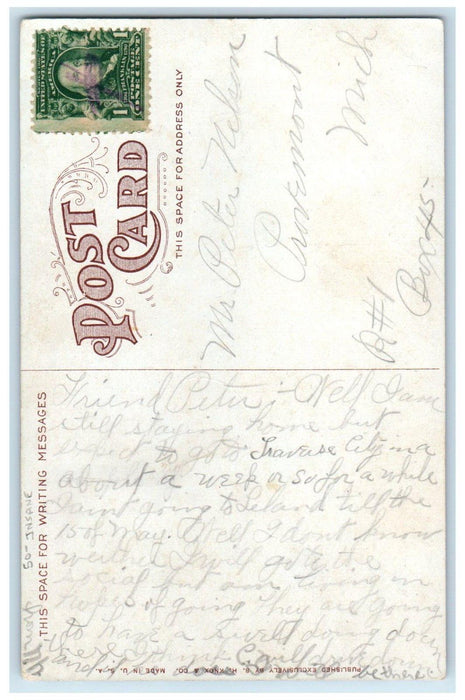 UNITED STATES OF AMERICA
1 1
FRANKLIN
ONE CENT
POST
CARD
THIS SPACE FOR ADDRESS ONLY
Mr Peter Nelson
Provemont
Mich
R#1
Box 45-
THIS SPACE FOR WRITING MESSAGES
50- INSANE
Friend Peter:- Well I am
still staying home but
expect to go to Traverse City in a
about a week or so for a while
I aint going to Leland till the
15 of May. Well I dont know
weather I will go to the
social but am living in
hopes of going They are going
to have a swell doing down
here I think
be there.
PUBLISHED EXCLUSIVELY BY S. H. KNOX & CO. MADE IN U. S. A.